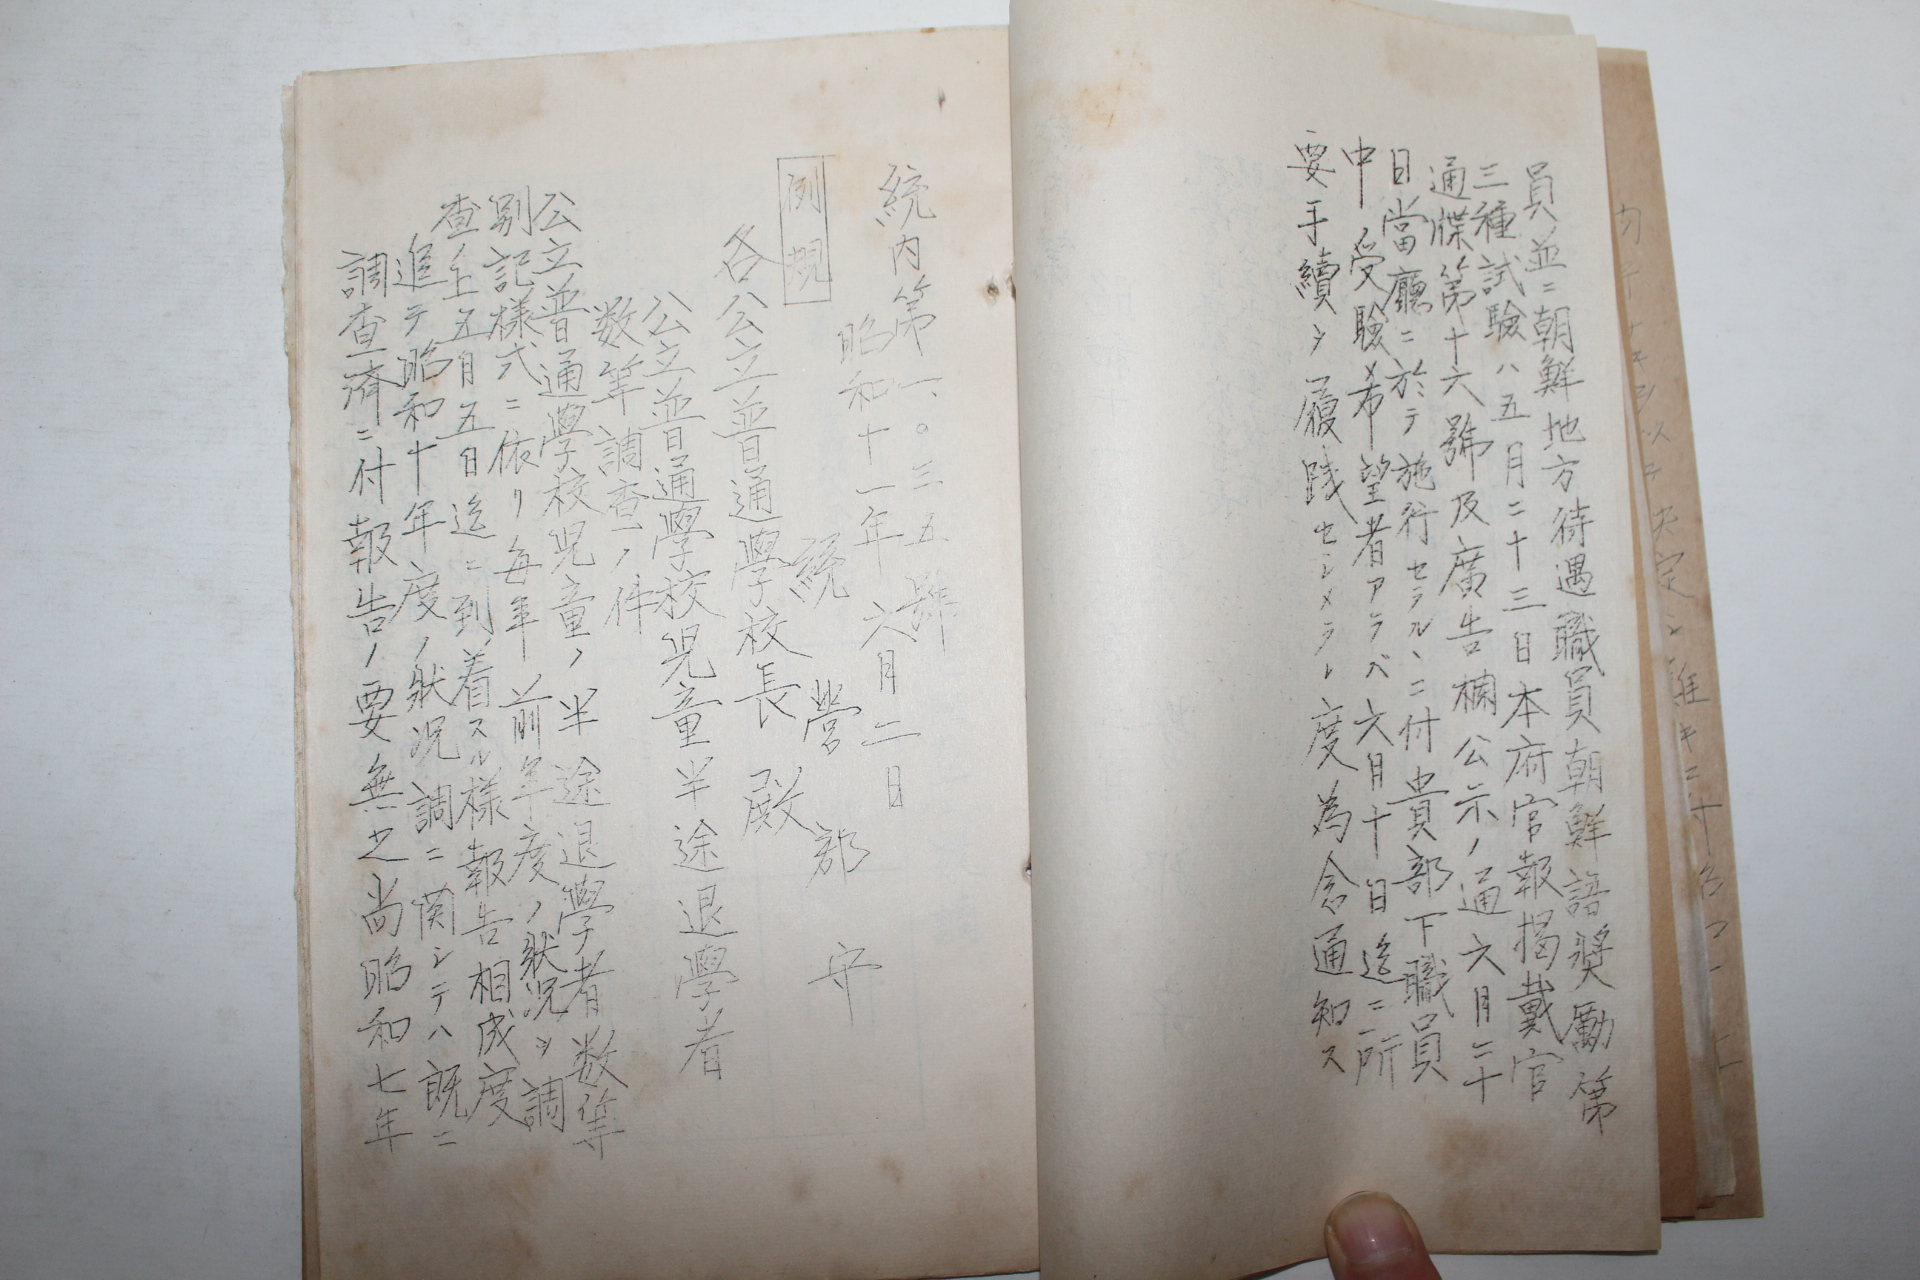 員並ニ朝鮮地方待遇職員朝鮮語奬勵第
三種試驗ハ五月二十三日本府官報揭載官
通牒第十六號及廣告欄公示ノ通六月二十
日當廳ニ於テ施行セラルヽニ付貴部下職員
中受驗希望者アラバ六月十日迄ニ所
要手續ヲ履踐セシメラレ度為念通知ス
統内第一〇三五號
昭和十一年六月二日
統營郡守
例規
各公立普通學校長殿
公立普通學校児童半途退學者
数等調査ノ件
公立普通學校児童ノ半途退學者数等
別記様式ニ依リ毎年前年度ノ狀況ヲ調
査ノ上五月五日迄ニ到着スル様報告相成度
追テ昭和十年度ノ狀況調ニ関シテハ既ニ
調査済ニ付報告ノ要無之尚昭和七年